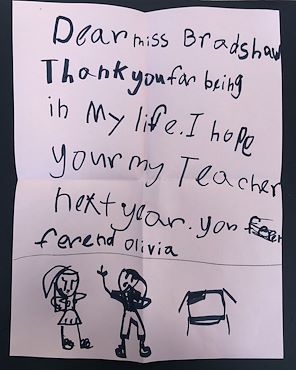 Dear miss Bradshaw
Thankyou for being
in My life. I hope
your my Teacher
next year. you
ferend olivia